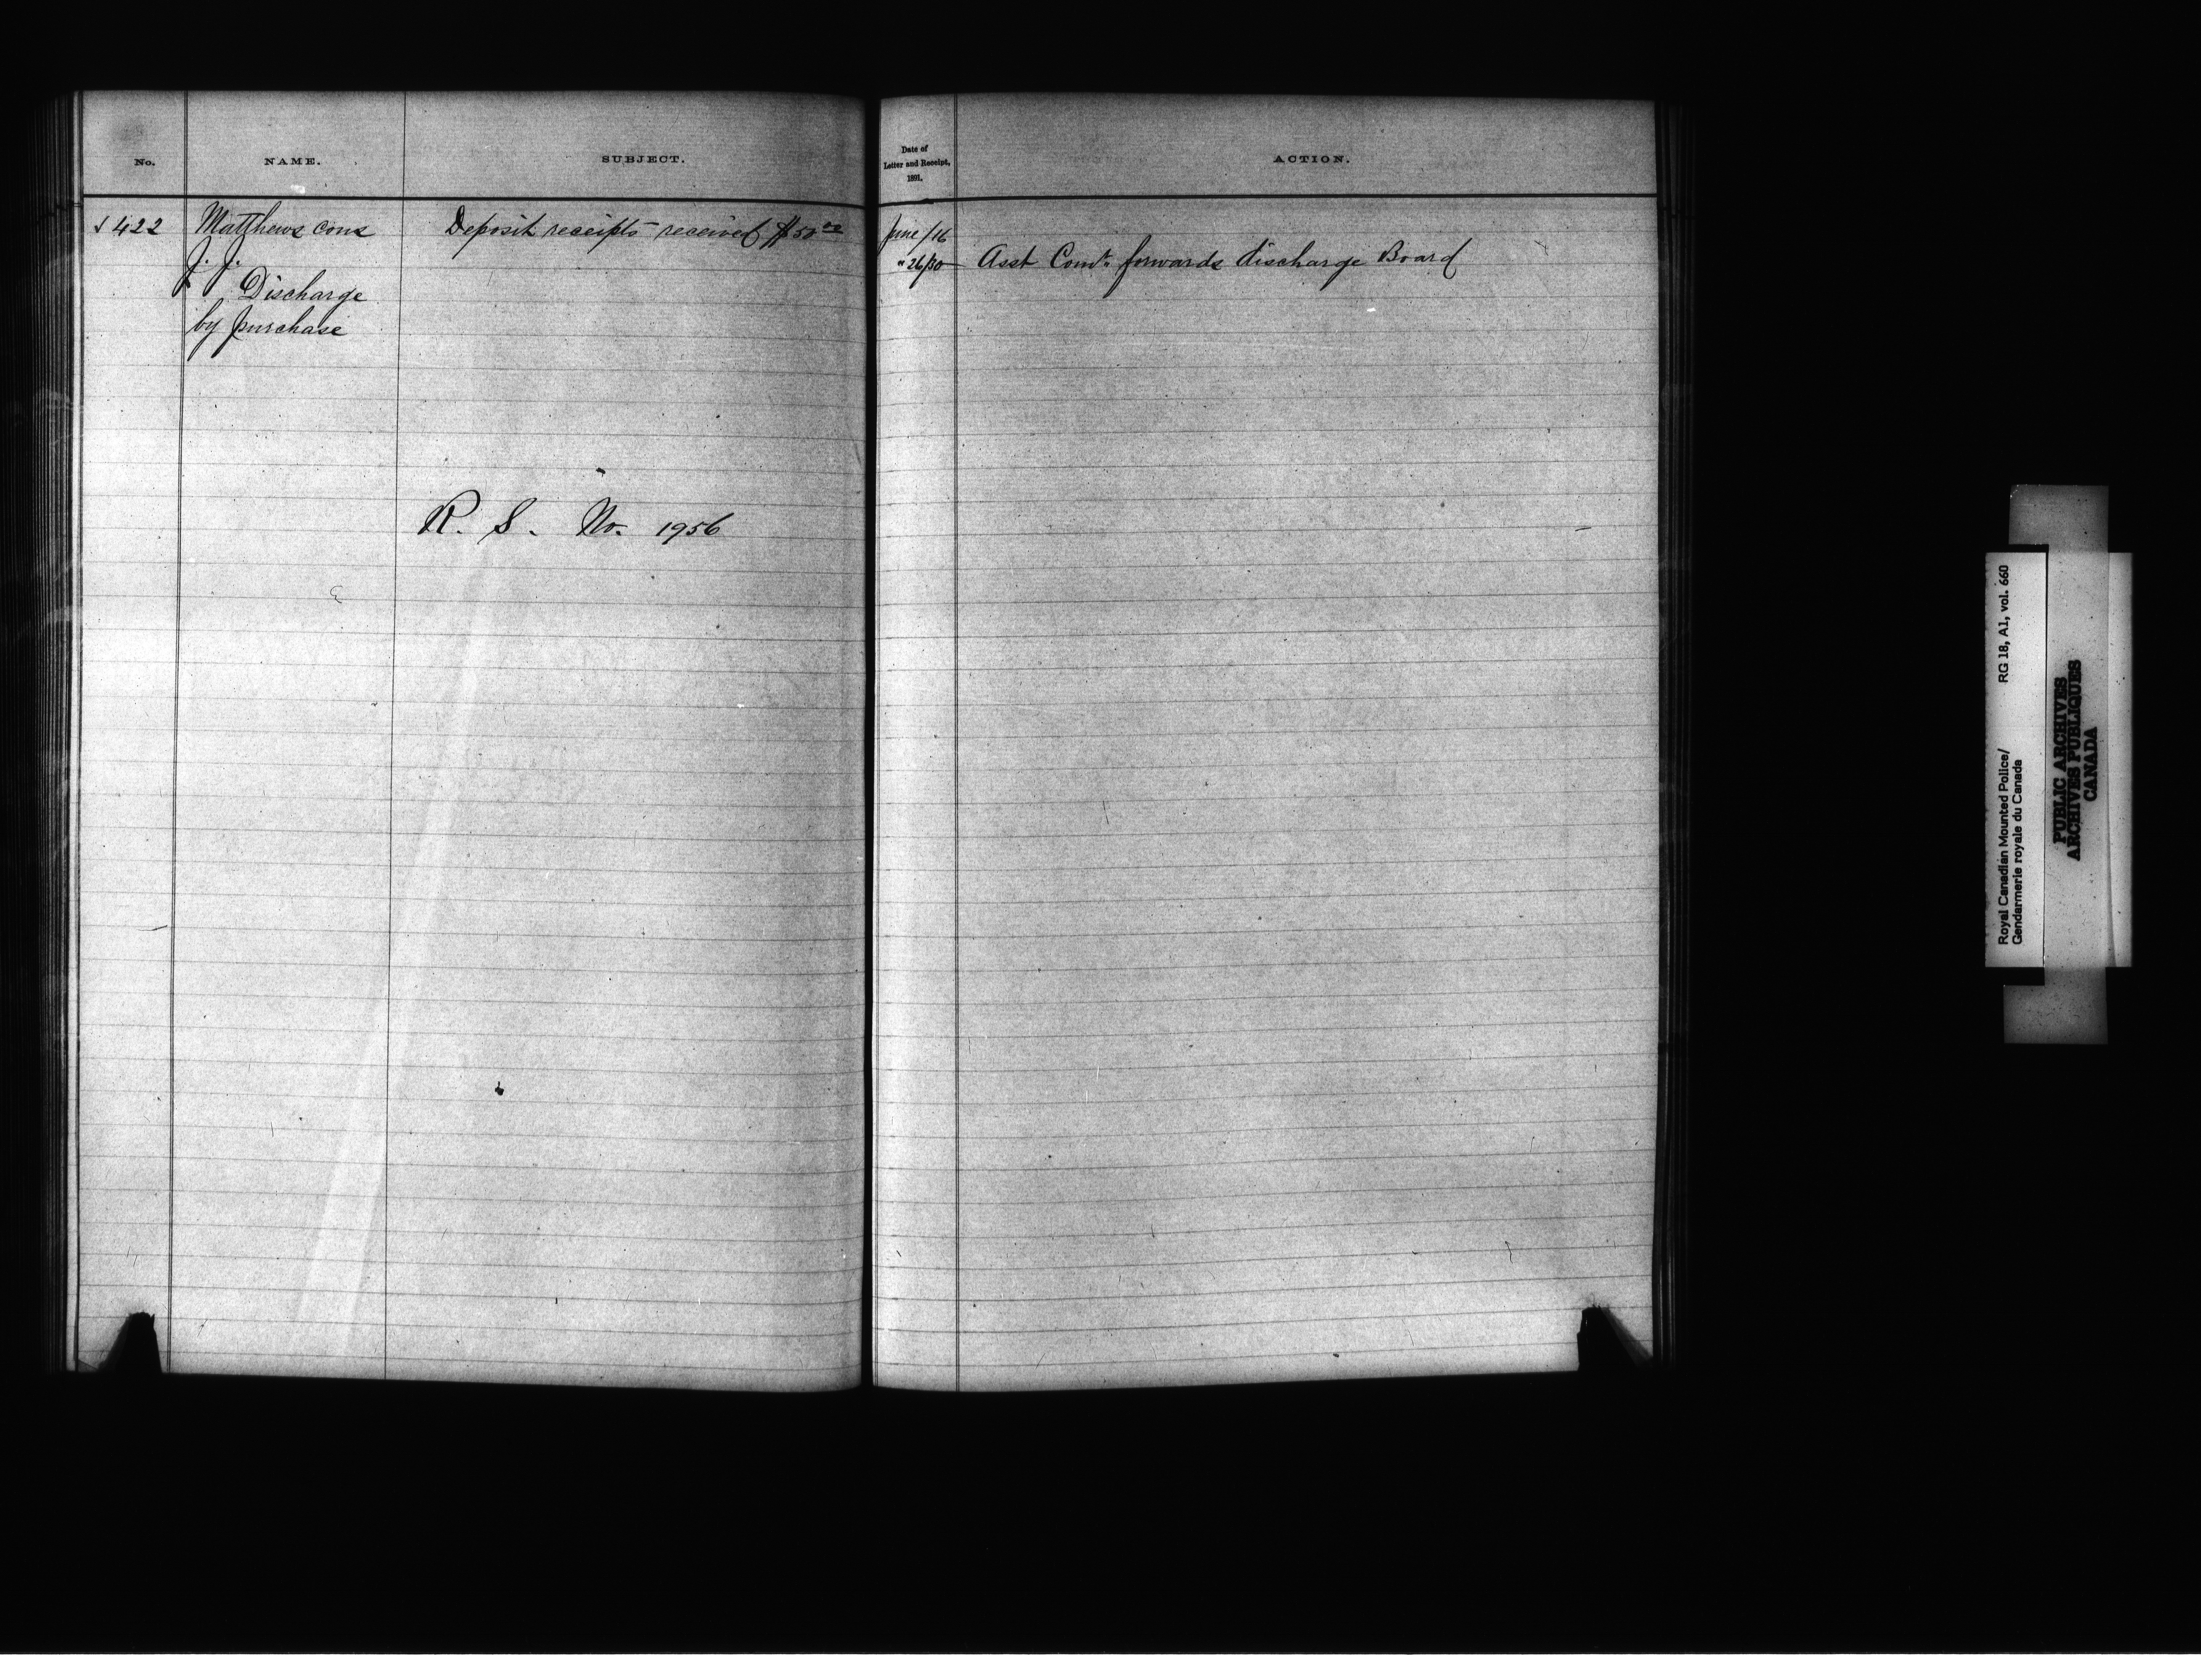 No.
NAME.
SUBJECT.
√ 422
Matthews cons
J. J.
Discharge
by purchase
Deposit receipts received $50 00
R. S. No. 1956
Date of
Letter and Receipt,
1891.
ACTION.
June/16
" 26/30
Asst Comr. forwards discharge Board
Royal Canadian Mounted Police/ RG 18, A1, vol. 660
Gendarmerie royale du Canada
PUBLIC ARCHIVES
ARCHIVES PUBLIQUES
CANADA